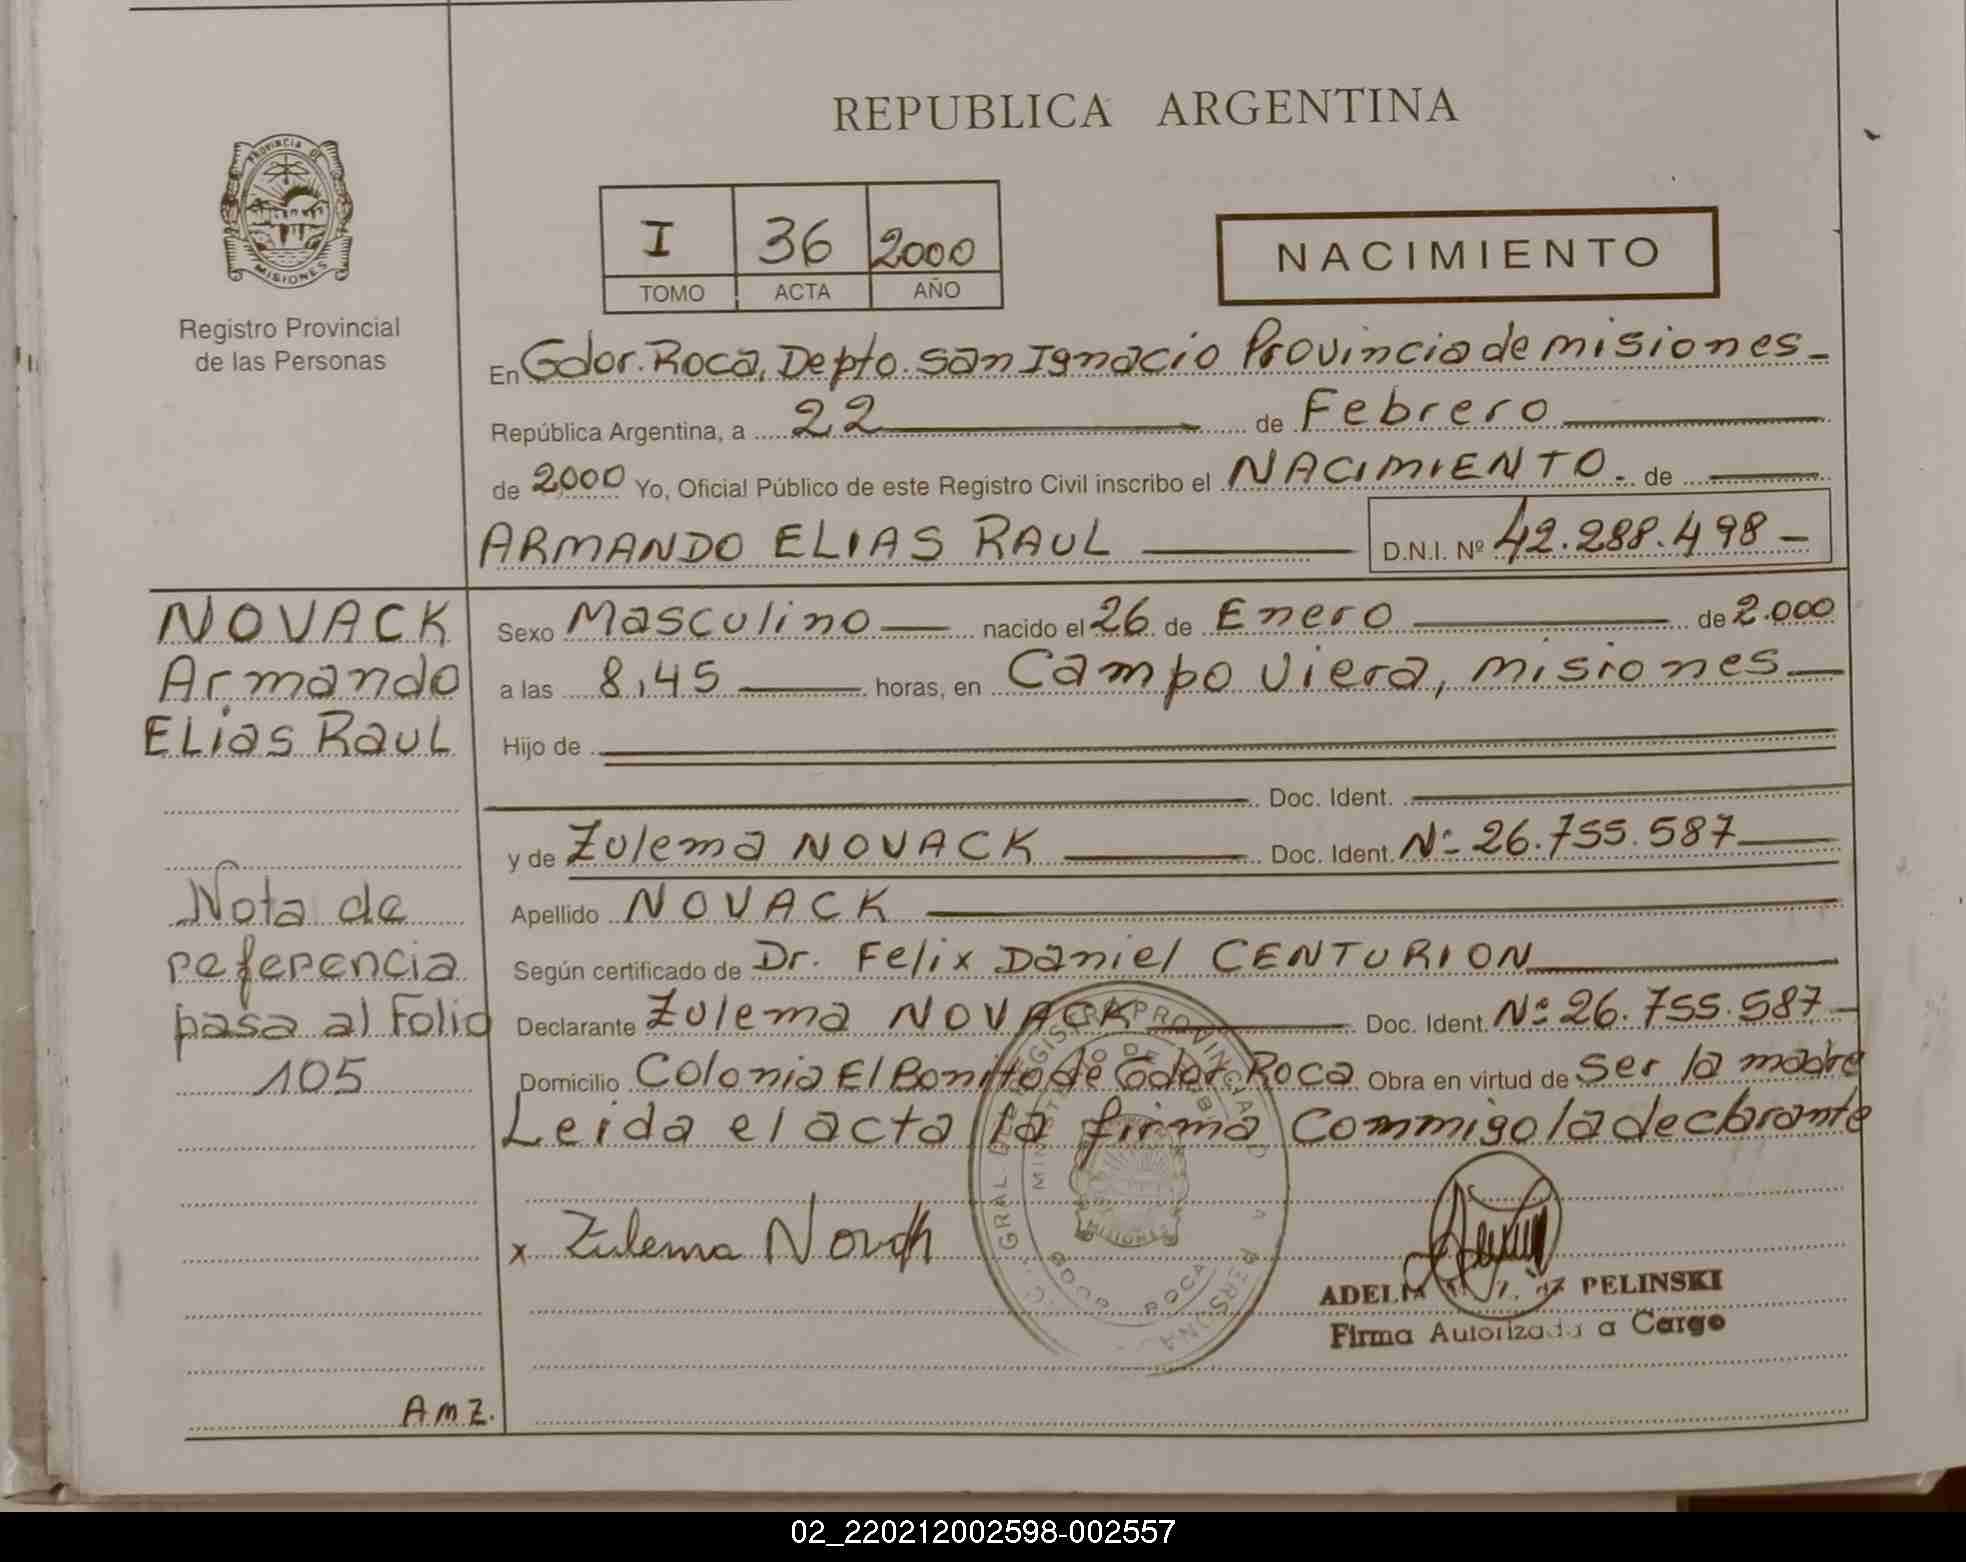 REPUBLICA ARGENTINA
PROVINCIA DE
MISIONES
Registro Provincial
de las Personas
I 36 2000
TOMO ACTA AÑO
NACIMIENTO
En Gdor. Roca, Depto. San Ignacio Provincia de misiones
República Argentina, a 22 de Febrero
de 2000 Yo, Oficial Público de este Registro Civil inscribo el NACIMIENTO de
ARMANDO ELIAS RAUL D.N.I. Nº 42.288.498
NOVACK
Armando
ELias RauL
Sexo Masculino nacido el 26 de Enero de 2.000
a las 8,45 horas, en Campo Viera, misiones
Hijo de
Doc. Ident.
y de Zulema NOVACK Doc. Ident. Nº 26.755.587
Apellido NOVACK
Según certificado de Dr. Felix Daniel CENTURION
Declarante Zulema NOVACK Doc. Ident. Nº 26.755.587
Domicilio Colonia El Bonito de Gdor Roca Obra en virtud de ser la madre
Leida el acta la firma Commigo la declarante
Nota de
referencia
pasa al Folio
105
x Zulema Novak
MISIONES
ADELA PELINSKI
Firma Autorizada a Cargo
A.M.Z.
02_220212002598-002557